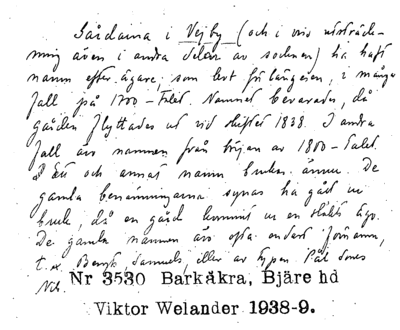 Gårdarna i Vejby (och i viss utsträck-
ning även i andra delar av socknen) ha haft
namn efter ägare, som levt för längesen, i många
fall på 1700-talet. Namnet bevarades, då
gården flyttades ut vid skiftet 1838. I andra
fall äro namnen från början av 1800-talet.
Ett och annat namn brukas ännu. De
gamla benämningarna synas ha gått ur
bruk, då en gård kommit ur en släkts ägo.
De gamla namnen äro ofta endast förnamn,
t. ex. Bengt Samuels, eller av typen Pål Jons
Nils.
Nr 3530 Barkåkra, Bjäre hd
Viktor Welander 1938-9.